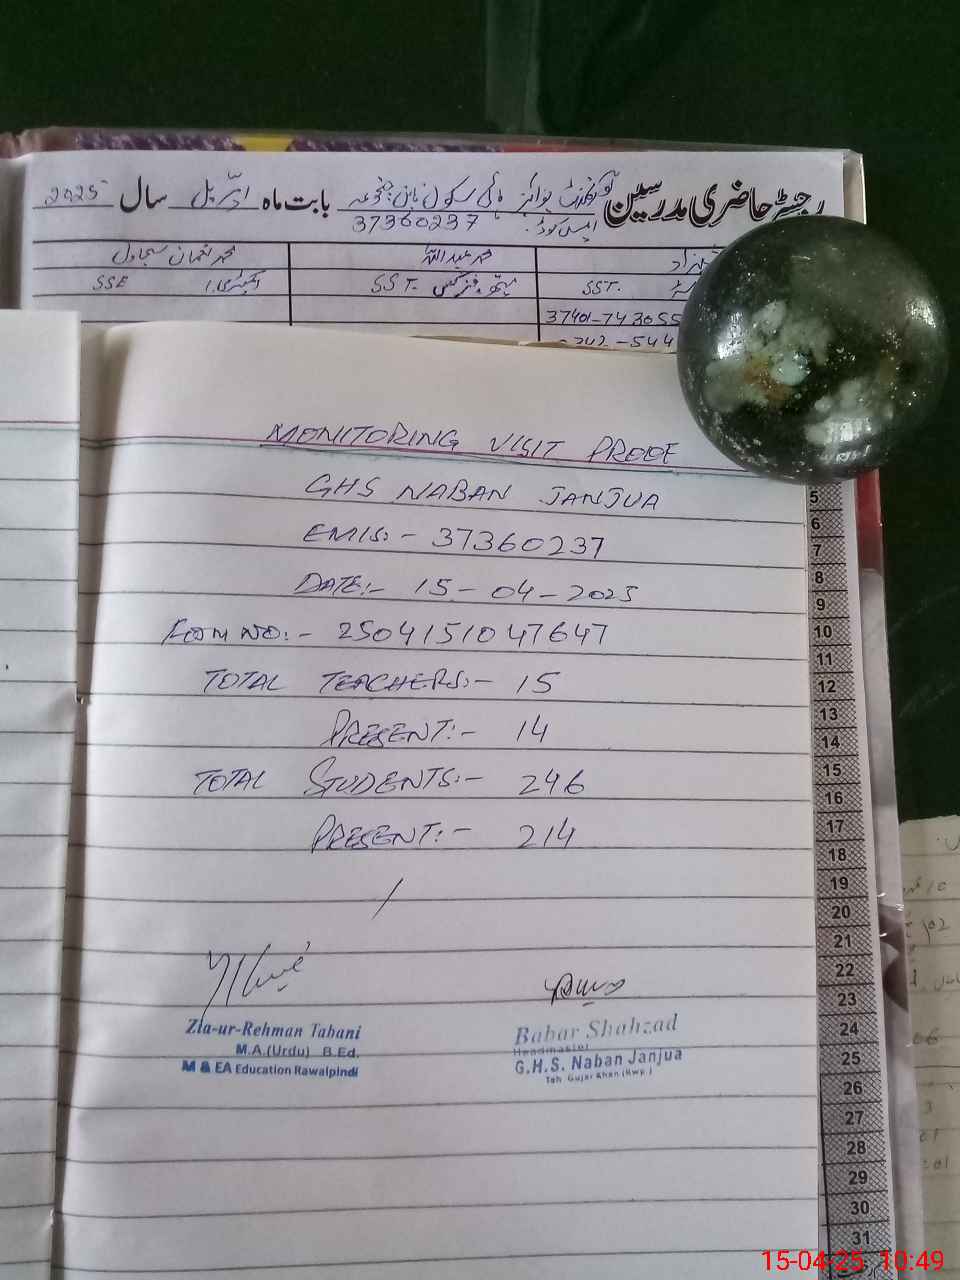 رجسٹر حاضری مدرسین گورنمنٹ بوائز ہائی سکول نابن جنجوعہ بابت ماہ اپریل سال 2025
ایمس کوڈ: 37360237
محمد عبداللہ محمد نعمان سجاول
SST. SST. SSE
37401-743055
-544
MONITORING VISIT PROOF
GHS NABAN JANJUA
EMIS:- 37360237
DATE:- 15-04-2025
FORM NO:- 2504151047647
TOTAL TEACHERS:- 15
PRESENT:- 14
TOTAL STUDENTS:- 246
PRESENT:- 214
Zia-ur-Rehman Tabani
M.A.(Urdu) B.Ed.
M & EA Education Rawalpindi
Babar Shahzad
Headmaster
G.H.S. Naban Janjua
Teh. Gujar Khan (Rwp.)
5
6
7
8
9
10
11
12
13
14
15
16
17
18
19
20
21
22
23
24
25
26
27
28
29
30
31
15-04-25 10:49